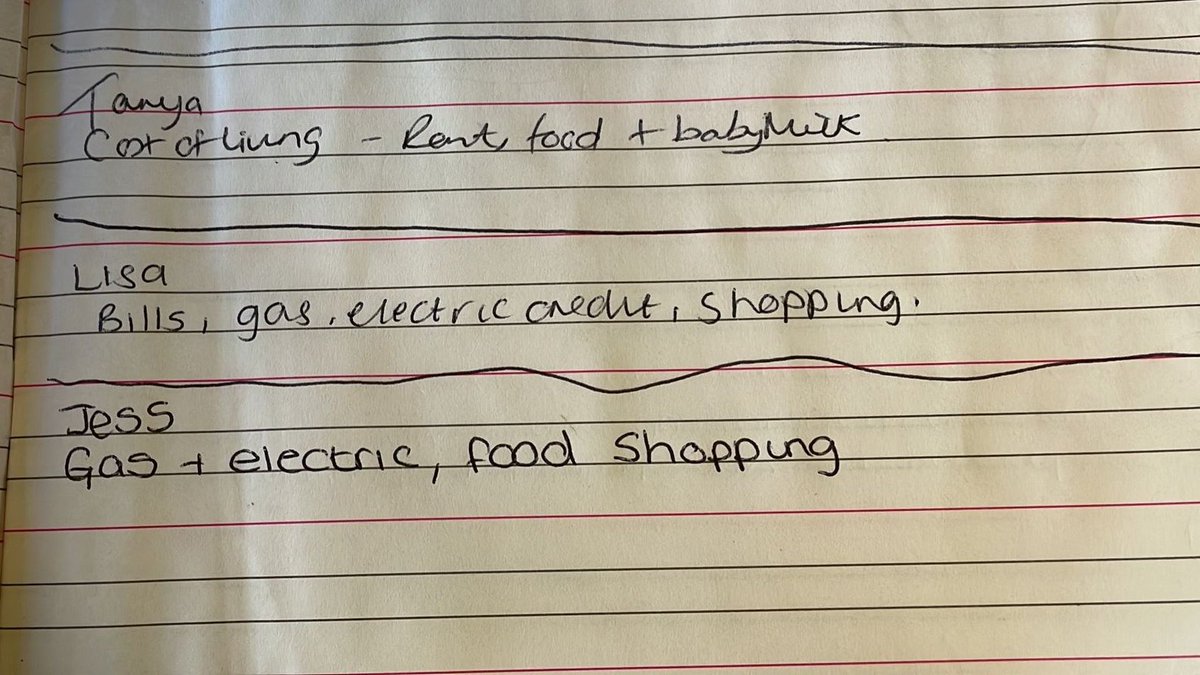 Tanya
Cost of living - Rent, food + baby Milk
Lisa
Bills, gas, electric credit, shopping.
Jess
Gas + electric, food shopping